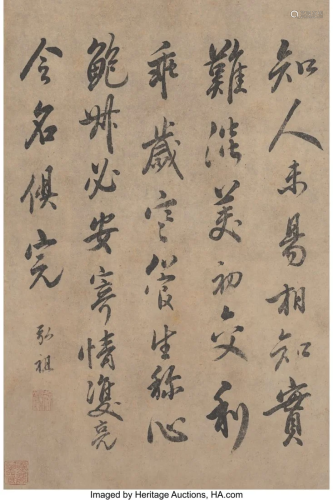 知人未易相知實
難淡美初交利
乖歲寒管生稱心
鮑叔必安寄情雙亮
令名俱完
弘祖
Imaged by Heritage Auctions, HA.com